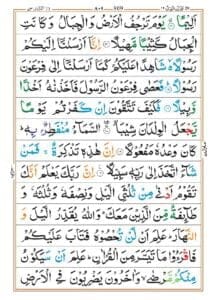 اَلِيْمًا ۝ يَوْمَ تَرْجُفُ الْاَرْضُ وَالْجِبَالُ وَكَانَتِ
الْجِبَالُ كَثِيْبًا مَّهِيْلًا ۝ اِنَّاۤ اَرْسَلْنَاۤ اِلَيْكُمْ
رَسُوْلًا شَاهِدًا عَلَيْكُمْ كَمَاۤ اَرْسَلْنَاۤ اِلٰى فِرْعَوْنَ
رَسُوْلًا ۝ فَعَصٰى فِرْعَوْنُ الرَّسُوْلَ فَاَخَذْنٰهُ اَخْذًا
وَّبِيْلًا ۝ فَكَيْفَ تَتَّقُوْنَ اِنْ كَفَرْتُمْ يَوْمًا
يَّجْعَلُ الْوِلْدَانَ شِيْبَا ۝ السَّمَآءُ مُنْفَطِرٌۢ بِهٖ
كَانَ وَعْدُهٗ مَفْعُوْلًا ۝ اِنَّ هٰذِهٖ تَذْكِرَةٌ فَمَنْ
شَآءَ اتَّخَذَ اِلٰى رَبِّهٖ سَبِيْلًا ۝ اِنَّ رَبَّكَ يَعْلَمُ اَنَّكَ
تَقُوْمُ اَدْنٰى مِنْ ثُلُثَىِ الَّيْلِ وَنِصْفَهٗ وَثُلُثَهٗ وَ
طَآئِفَةٌ مِّنَ الَّذِيْنَ مَعَكَ وَاللّٰهُ يُقَدِّرُ الَّيْلَ وَ
النَّهَارَ عَلِمَ اَنْ لَّنْ تُحْصُوْهُ فَتَابَ عَلَيْكُمْ
فَاقْرَءُوْا مَا تَيَسَّرَ مِنَ الْقُرْاٰنِ عَلِمَ اَنْ سَيَكُوْنُ
مِنْكُمْ مَّرْضٰى وَاٰخَرُوْنَ يَضْرِبُوْنَ فِى الْاَرْضِ